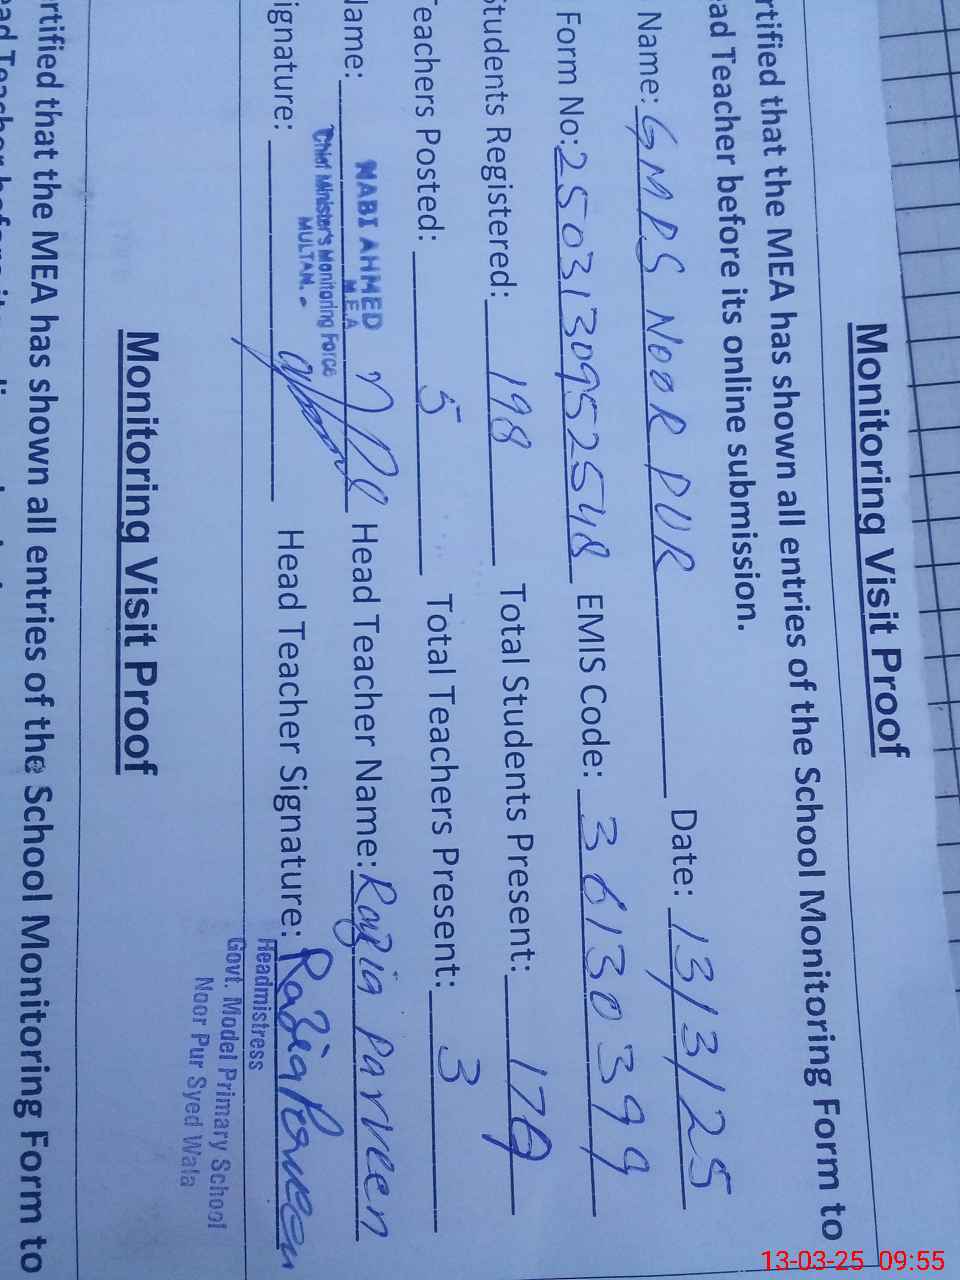 Monitoring Visit Proof
rtified that the MEA has shown all entries of the School Monitoring Form to
ad Teacher before its online submission.
Name: GMPS NOOR PUR Date: 13/3/25
Form No: 2503130952548 EMIS Code: 36130399
Students Registered: 198 Total Students Present: 170
Teachers Posted: 5 Total Teachers Present: 3
Name: NABI AHMED Head Teacher Name: Razia Parveen
M.E.A
Chief Minister's Monitoring Force
MULTAN.
ignature: Head Teacher Signature: Razia Parveen
Headmistress
Govt. Model Primary School
Noor Pur Syed Wala
Monitoring Visit Proof
rtified that the MEA has shown all entries of the School Monitoring Form to
ad Teacher before its
13-03-25 09:55